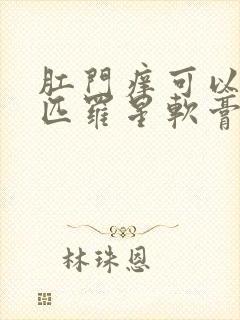 肛門痒可以
匹羅星軟膏
林珠恩